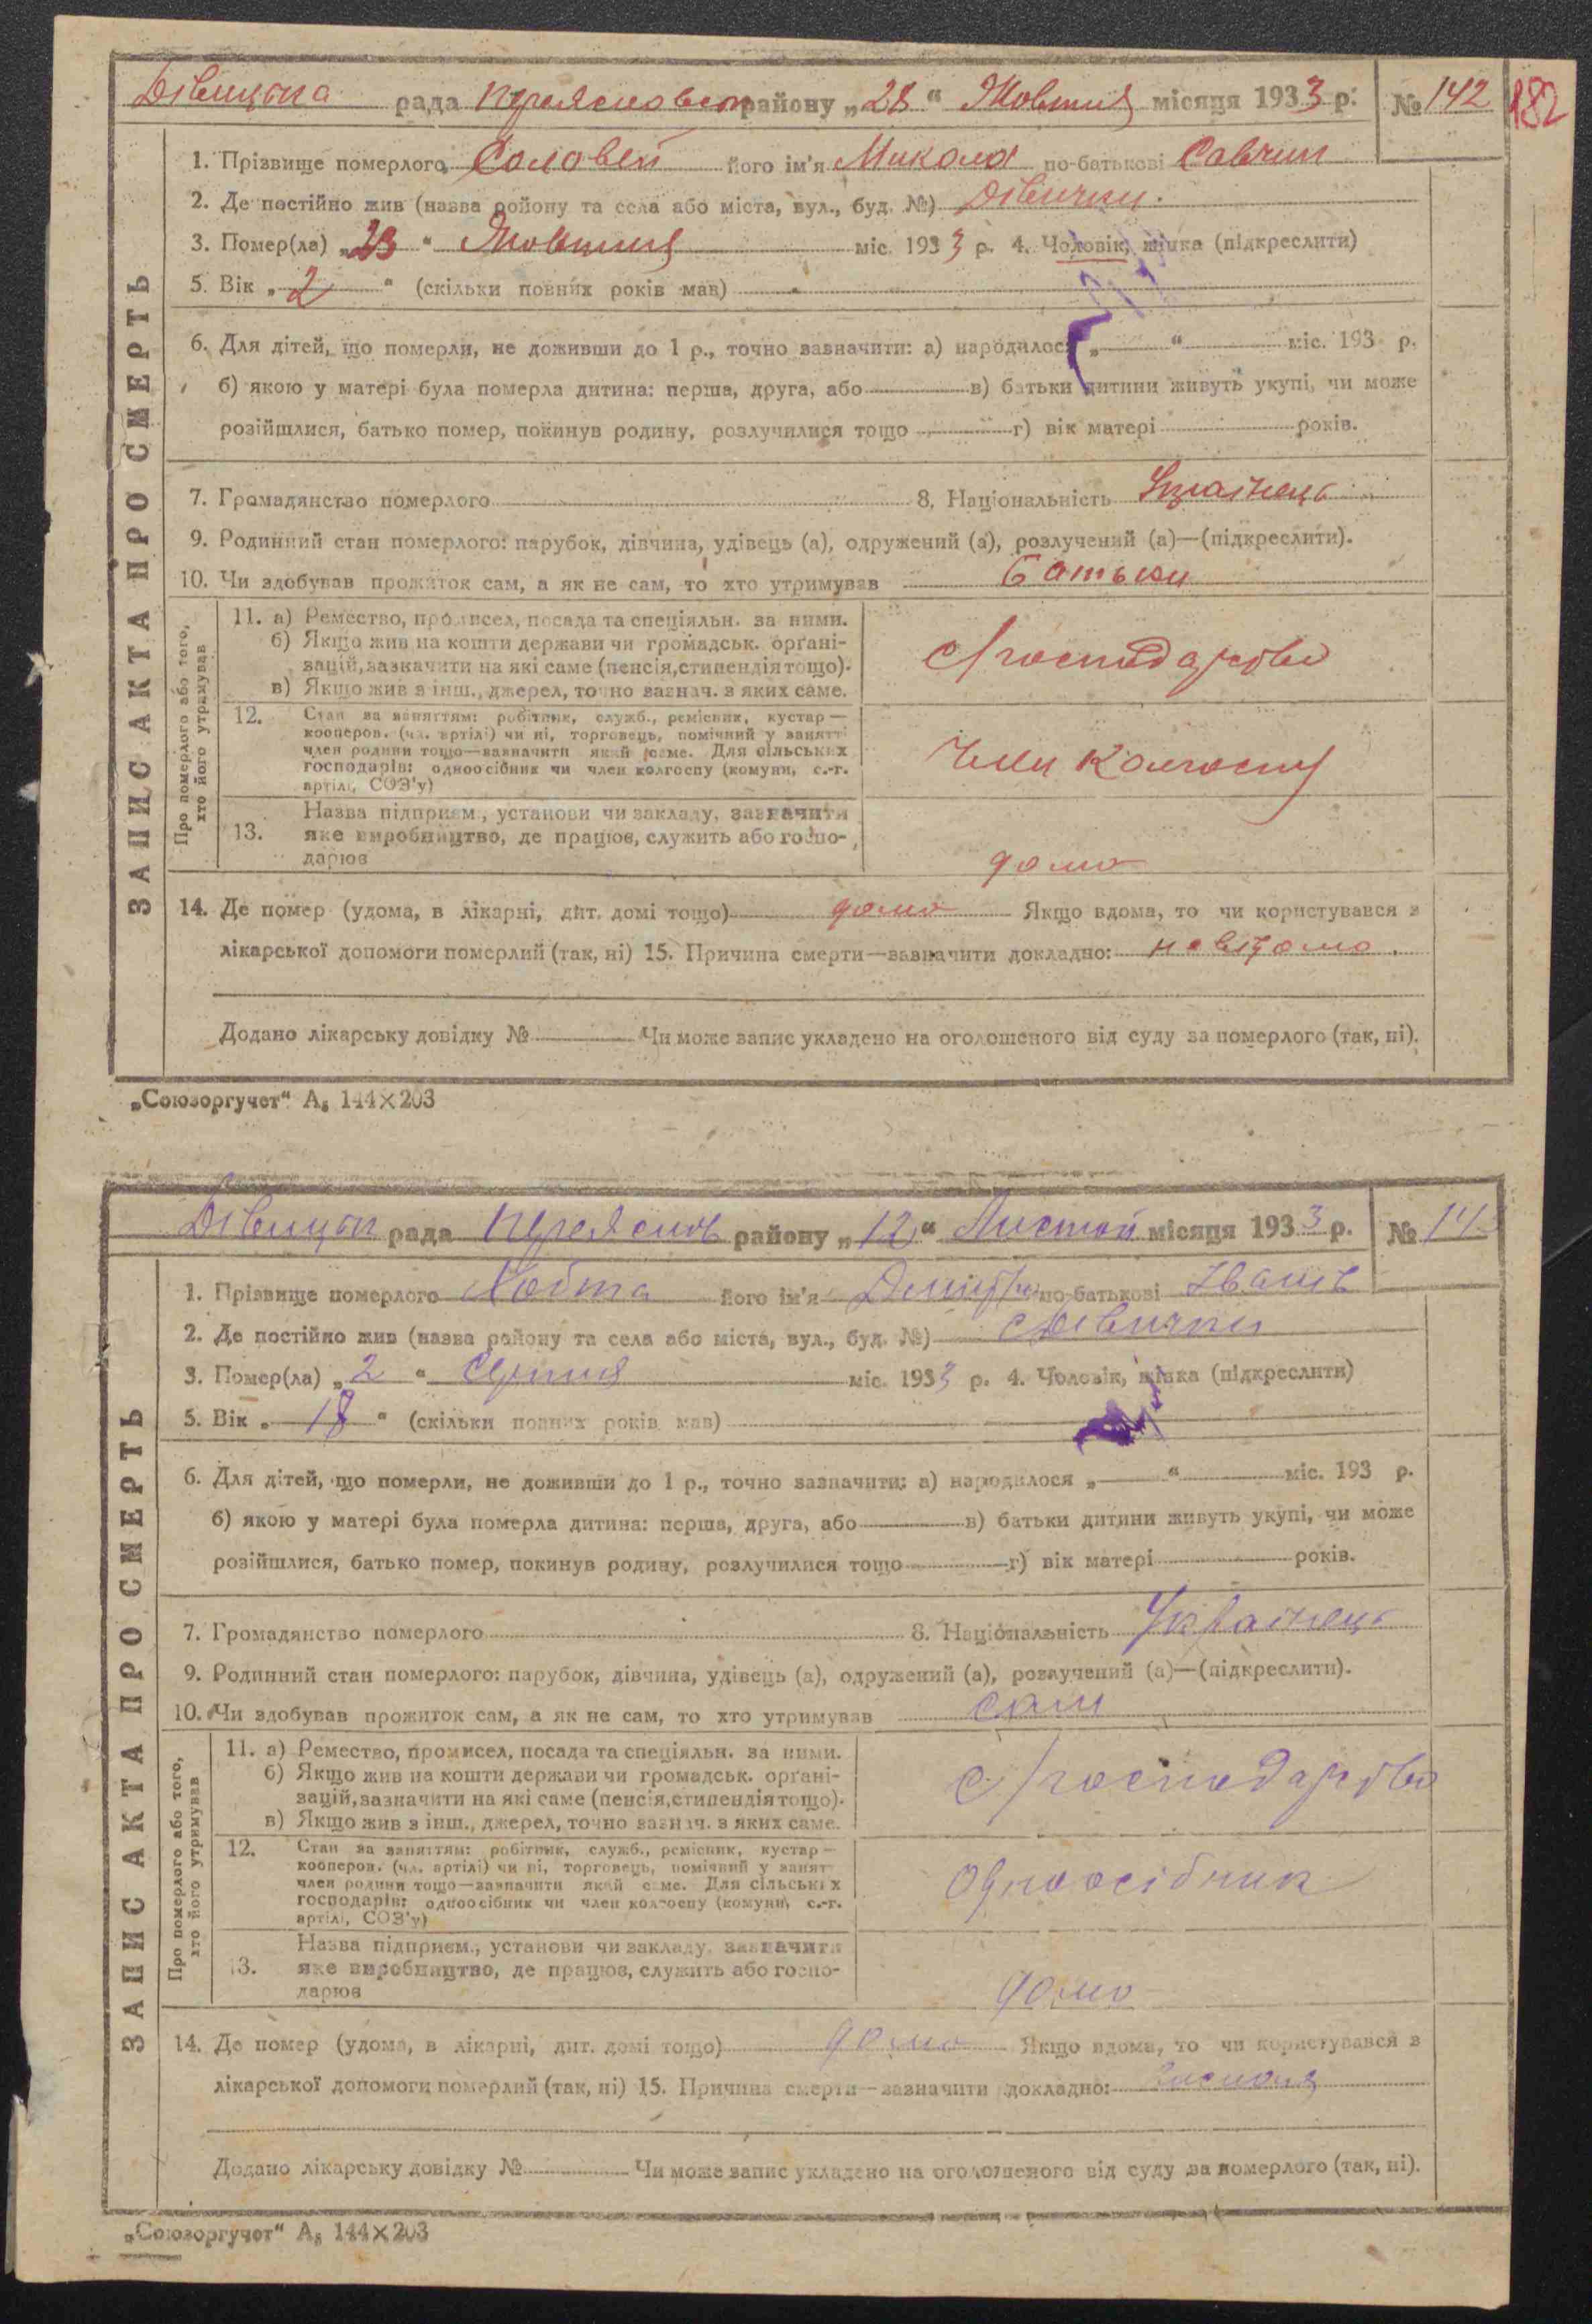 Дівицька рада Переясловськ району „28“ Жовтня місяця 1933 р. № 142 182
ЗАПИС АКТА ПРО СМЕРТЬ
1. Прізвище померлого Соловей його ім'я Микола по-батькові Савчин
2. Де постійно жив (назва району та села або міста, вул., буд. №) Дівички.
3. Помер(ла) „23“ Жовтня міс. 1933 р. 4. Чоловік, жінка (підкреслити)
5. Вік „2“ (скільки повних років мав)
6. Для дітей, що померли, не доживши до 1 р., точно зазначити: а) народилося „ “ міс. 193 р.
б) якою у матері була померла дитина: перша, друга, або в) батьки дитини живуть укупі, чи може
розійшлися, батько помер, покинув родину, розлучилися тощо г) вік матері років.
7. Громадянство померлого 8. Національність Українець
9. Родинний стан померлого: парубок, дівчина, удівець (а), одружений (а), розлучений (а)—(підкреслити).
10. Чи здобував прожиток сам, а як не сам, то хто утримував батьки
Про померлого або того, хто його утримував
11. а) Ремество, промисел, посада та спеціяльн. за ними.
б) Якщо жив на кошти держави чи громадськ. організацій, зазначити на які саме (пенсія, стипендія тощо).
в) Якщо жив з інш., джерел, точно зазнач. з яких саме.
с/господарство
12. Стан за заняттям: робітник, служб., ремісник, кустар—
кооперов. (чл. артілі) чи ні, торговець, помічний у занятті
член родини тощо—зазначити який саме. Для сільських
господарів: одноосібник чи член колгоспу (комуни, с.-г.
артілі, СОЗ'у)
Член колгоспу
13. Назва підприєм., установи чи закладу, зазначити
яке виробництво, де працює, служить або госпо-
дарює
дома
14. Де помер (удома, в лікарні, дит. домі тощо) дома Якщо вдома, то чи користувався з
лікарської допомоги померлий (так, ні) 15. Причина смерти—зазначити докладно: невідомо.
Додано лікарську довідку № Чи може запис укладено на оголошеного від суду за померлого (так, ні).
„Союзоргучет“ А₅ 144×203
Дівицьк рада Переяслов району „12“ Листоп місяця 1933 р. № 143
ЗАПИС АКТА ПРО СМЕРТЬ
1. Прізвище померлого його ім'я Дмитро по-батькові Іванів
2. Де постійно жив (назва району та села або міста, вул., буд. №) Дівички
3. Помер(ла) „2“ Серпня міс. 1933 р. 4. Чоловік, жінка (підкреслити)
5. Вік „18“ (скільки повних років мав)
6. Для дітей, що померли, не доживши до 1 р., точно зазначити: а) народилося „ “ міс. 193 р.
б) якою у матері була померла дитина: перша, друга, або в) батьки дитини живуть укупі, чи може
розійшлися, батько помер, покинув родину, розлучилися тощо г) вік матері років.
7. Громадянство померлого 8. Національність Українець
9. Родинний стан померлого: парубок, дівчина, удівець (а), одружений (а), розлучений (а)—(підкреслити).
10. Чи здобував прожиток сам, а як не сам, то хто утримував сам
Про померлого або того, хто його утримував
11. а) Ремество, промисел, посада та спеціяльн. за ними.
б) Якщо жив на кошти держави чи громадськ. організацій, зазначити на які саме (пенсія, стипендія тощо).
в) Якщо жив з інш., джерел, точно зазнач. з яких саме.
с/господарство
12. Стан за заняттям: робітник, служб., ремісник, кустар—
кооперов. (чл. артілі) чи ні, торговець, помічний у занят
член родини тощо—зазначити який саме. Для сільських
господарів: одноосібник чи член колгоспу (комуни, с.-г.
артілі, СОЗ'у)
Одноосібник
13. Назва підприєм., установи чи закладу, зазначити
яке виробництво, де працює, служить або госпо-
дарює
дома
14. Де помер (удома, в лікарні, дит. домі тощо) дома Якщо вдома, то чи користувався з
лікарської допомоги померлий (так, ні) 15. Причина смерти—зазначити докладно:
Додано лікарську довідку № Чи може запис укладено на оголошеного від суду за померлого (так, ні).
„Союзоргучет“ А₅ 144×203